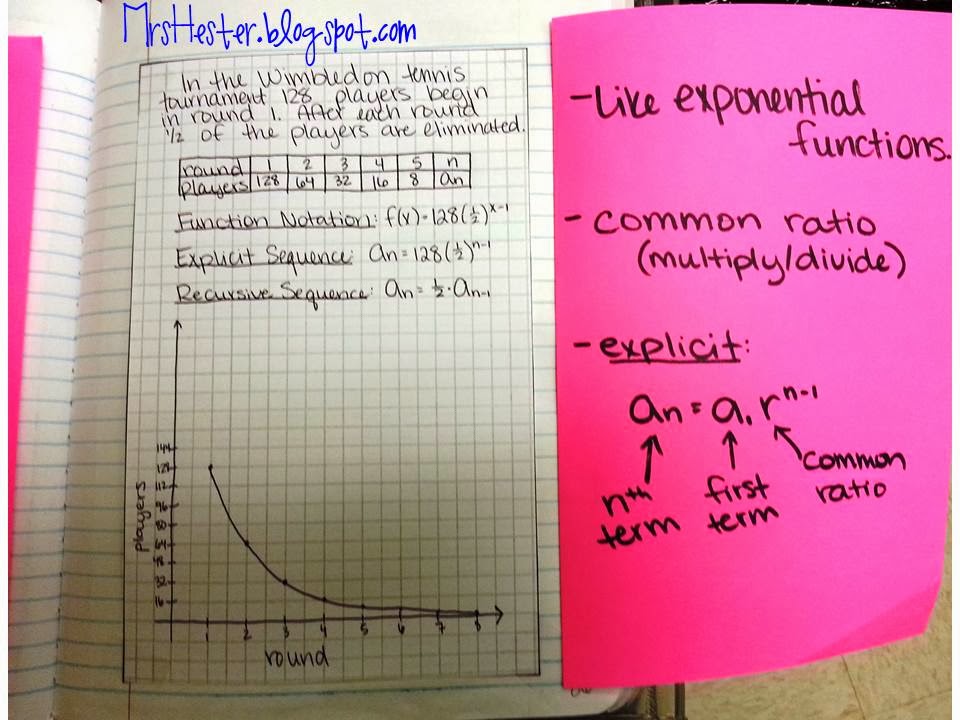 MrsHester.blogspot.com
In the Wimbledon tennis
tournament, 128 players begin
in round 1. After each round
1/2 of the players are eliminated.
round 1 2 3 4 5 n
players 128 64 32 16 8 an
Function Notation: f(x)=128(½)^x-1
Explicit Sequence: an=128(½)^n-1
Recursive Sequence: an=½·an-1
players
144
128
112
96
80
64
48
32
16
1 2 3 4 5 6 7 8
round
-Like exponential
functions.
- common ratio
(multiply/divide)
- explicit:
an = a1 r^n-1
nth
term
first
term
common
ratio